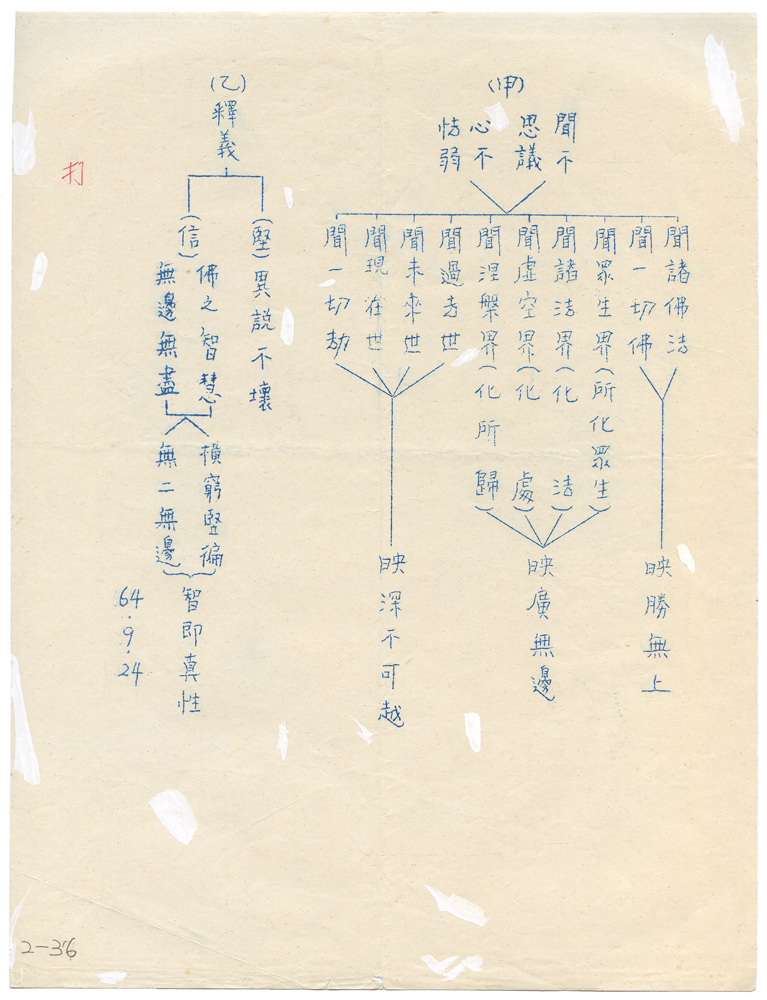 (甲)
聞不
思議
心不
怯弱
聞諸佛法
聞一切佛
聞眾生界(所化眾生)
聞諸法界(化法)
聞虛空界(化處)
聞涅槃界(化所歸)
聞過去世
聞未來世
聞現在世
聞一切劫
映勝無上
映廣無邊
映深不可越
(乙)
釋義
(堅)異說不壞
(信)
佛之智慧
無邊無盡
橫窮豎徧
無二無邊
智即真性
64.9.24
打
2-36